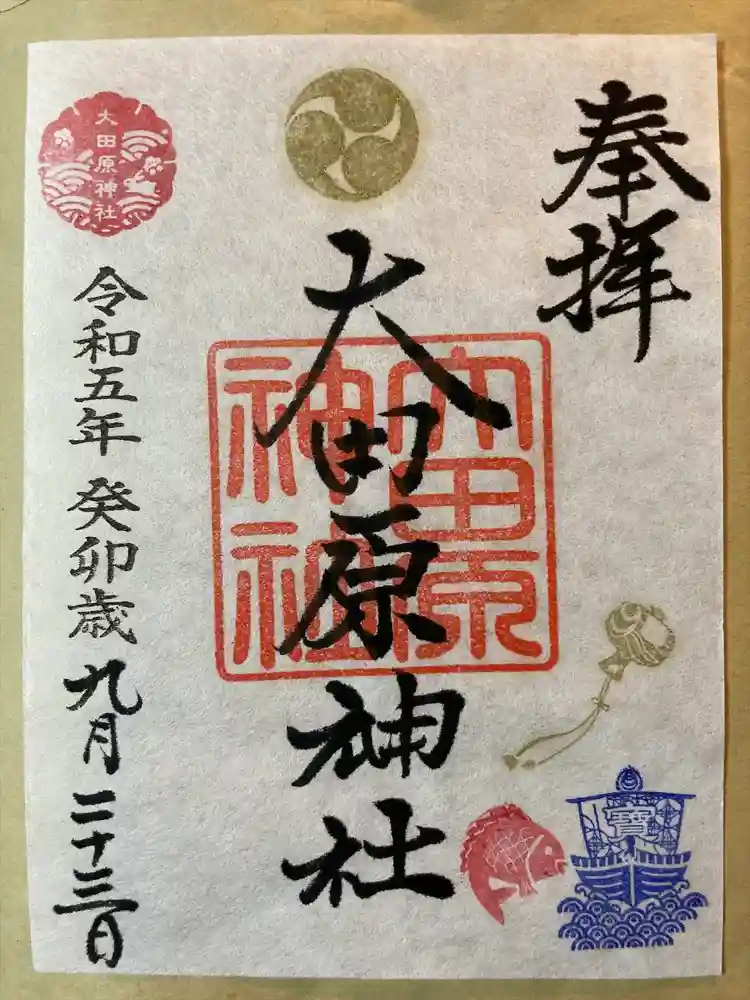 奉拝
大田原神社
大田原神社
令和五年 癸卯歳 九月二十三日
大田原神社
寶